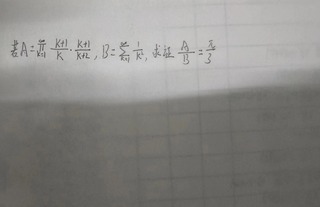 若A=∏_{k=1}^{∞} \frac{k+1}{k}·\frac{k+1}{k+2}, B=∑_{k=1}^{∞} \frac{1}{k²}, 求证 \frac{A}{B}=\frac{π}{3}